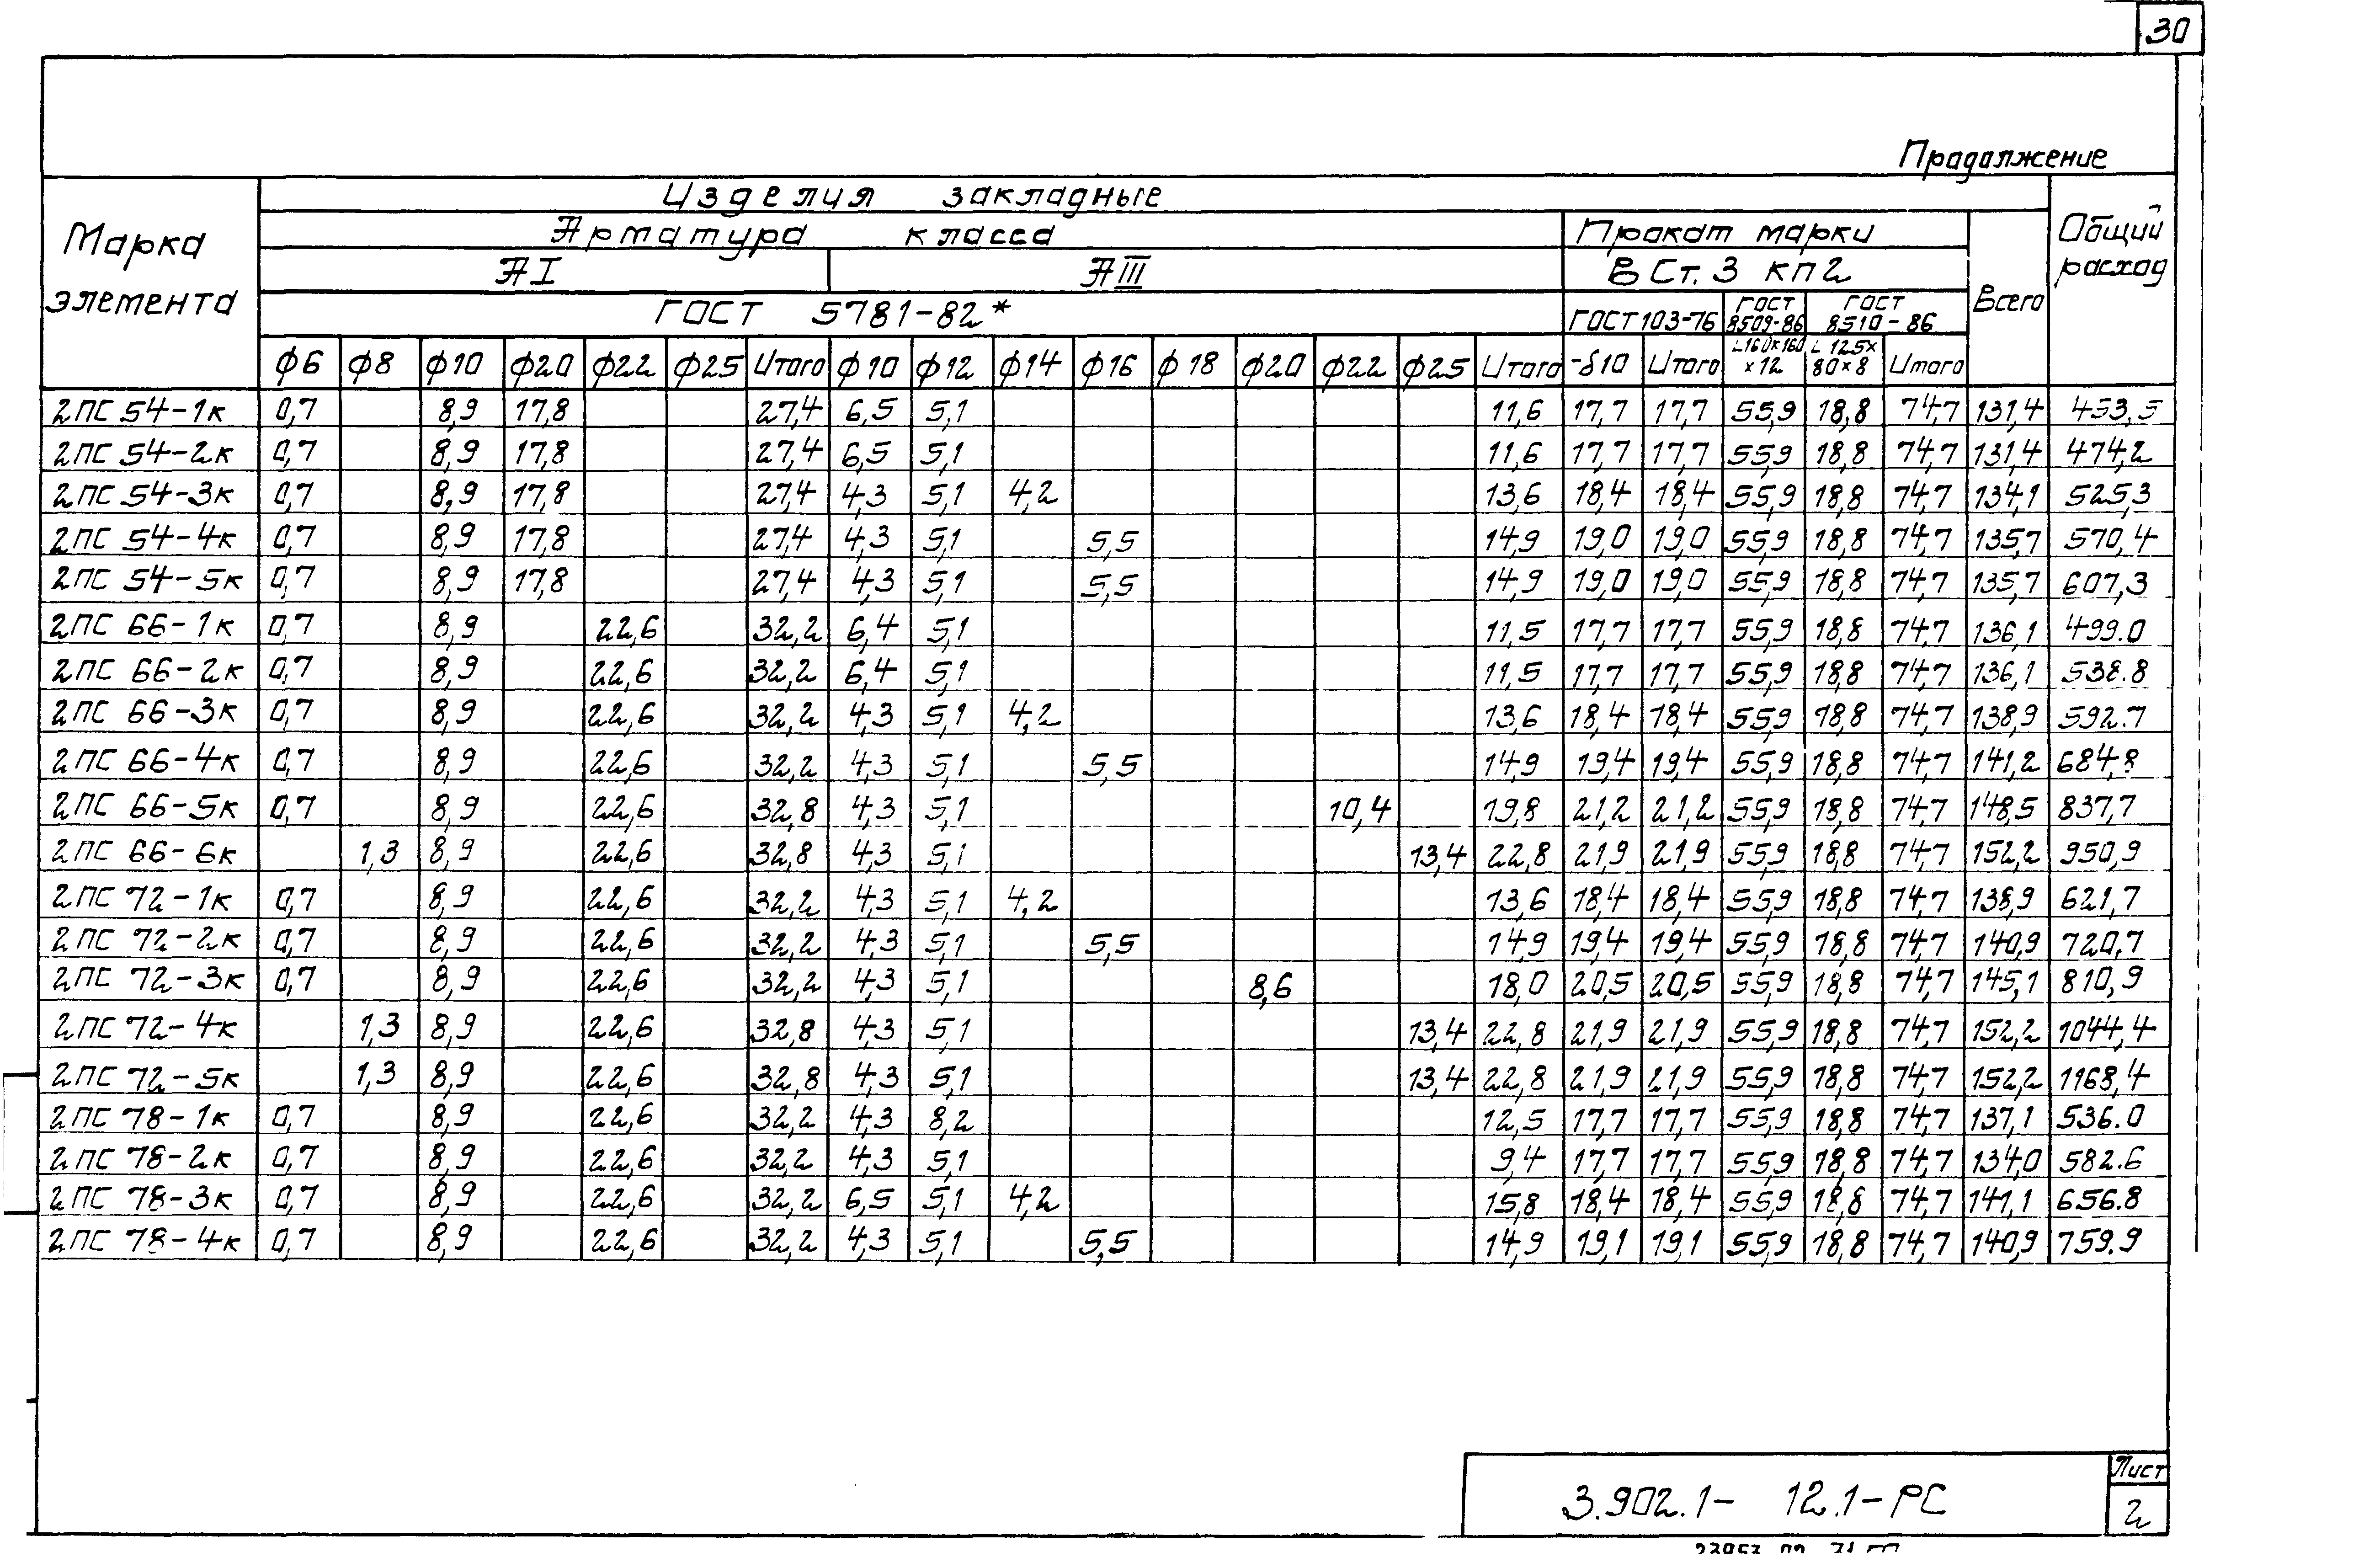 30
Продолжение
Марка элемента
Изделия закладные
Общий расход
Арматура класса
Прокат марки
Всего
АI АIII ВСт.3 кп2
ГОСТ 5781-82*
ГОСТ 103-76 ГОСТ 8509-86 ГОСТ 8510-86
ф6 ф8 ф10 ф20 ф22 ф25 Итого ф10 ф12 ф14 ф16 ф18 ф20 ф22 ф25 Итого -δ10 Итого L160x160x12 L125x80x8 Итого
2ПС 54-1к 0,7 8,9 17,8 27,4 6,5 5,1 11,6 17,7 17,7 55,9 18,8 74,7 131,4 453,5
2ПС 54-2к 0,7 8,9 17,8 27,4 6,5 5,1 11,6 17,7 17,7 55,9 18,8 74,7 131,4 474,2
2ПС 54-3к 0,7 8,9 17,8 27,4 4,3 5,1 4,2 13,6 18,4 18,4 55,9 18,8 74,7 134,1 525,3
2ПС 54-4к 0,7 8,9 17,8 27,4 4,3 5,1 5,5 14,9 19,0 19,0 55,9 18,8 74,7 135,7 570,4
2ПС 54-5к 0,7 8,9 17,8 27,4 4,3 5,1 5,5 14,9 19,0 19,0 55,9 18,8 74,7 135,7 607,3
2ПС 66-1к 0,7 8,9 22,6 32,2 6,4 5,1 11,5 17,7 17,7 55,9 18,8 74,7 136,1 499.0
2ПС 66-2к 0,7 8,9 22,6 32,2 6,4 5,1 11,5 17,7 17,7 55,9 18,8 74,7 136,1 538.8
2ПС 66-3к 0,7 8,9 22,6 32,2 4,3 5,1 4,2 13,6 18,4 18,4 55,9 18,8 74,7 138,9 592.7
2ПС 66-4к 0,7 8,9 22,6 32,2 4,3 5,1 5,5 14,9 19,4 19,4 55,9 18,8 74,7 141,2 684,8
2ПС 66-5к 0,7 8,9 22,6 32,8 4,3 5,1 10,4 19,8 21,2 21,2 55,9 18,8 74,7 148,5 837,7
2ПС 66-6к 1,3 8,9 22,6 32,8 4,3 5,1 13,4 22,8 21,9 21,9 55,9 18,8 74,7 152,2 950,9
2ПС 72-1к 0,7 8,9 22,6 32,2 4,3 5,1 4,2 13,6 18,4 18,4 55,9 18,8 74,7 138,9 621,7
2ПС 72-2к 0,7 8,9 22,6 32,2 4,3 5,1 5,5 14,9 19,4 19,4 55,9 18,8 74,7 140,9 720,7
2ПС 72-3к 0,7 8,9 22,6 32,2 4,3 5,1 8,6 18,0 20,5 20,5 55,9 18,8 74,7 145,1 810,9
2ПС 72-4к 1,3 8,9 22,6 32,8 4,3 5,1 13,4 22,8 21,9 21,9 55,9 18,8 74,7 152,2 1044,4
2ПС 72-5к 1,3 8,9 22,6 32,8 4,3 5,1 13,4 22,8 21,9 21,9 55,9 18,8 74,7 152,2 1168,4
2ПС 78-1к 0,7 8,9 22,6 32,2 4,3 8,2 12,5 17,7 17,7 55,9 18,8 74,7 137,1 536.0
2ПС 78-2к 0,7 8,9 22,6 32,2 4,3 5,1 9,4 17,7 17,7 55,9 18,8 74,7 134,0 582.6
2ПС 78-3к 0,7 8,9 22,6 32,2 6,5 5,1 4,2 15,8 18,4 18,4 55,9 18,8 74,7 141,1 656.8
2ПС 78-4к 0,7 8,9 22,6 32,2 4,3 5,1 5,5 14,9 19,1 19,1 55,9 18,8 74,7 140,9 759.9
3.902.1- 12.1-РС
Лист
2